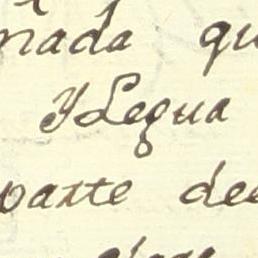 nada qu
YLegua
parte de